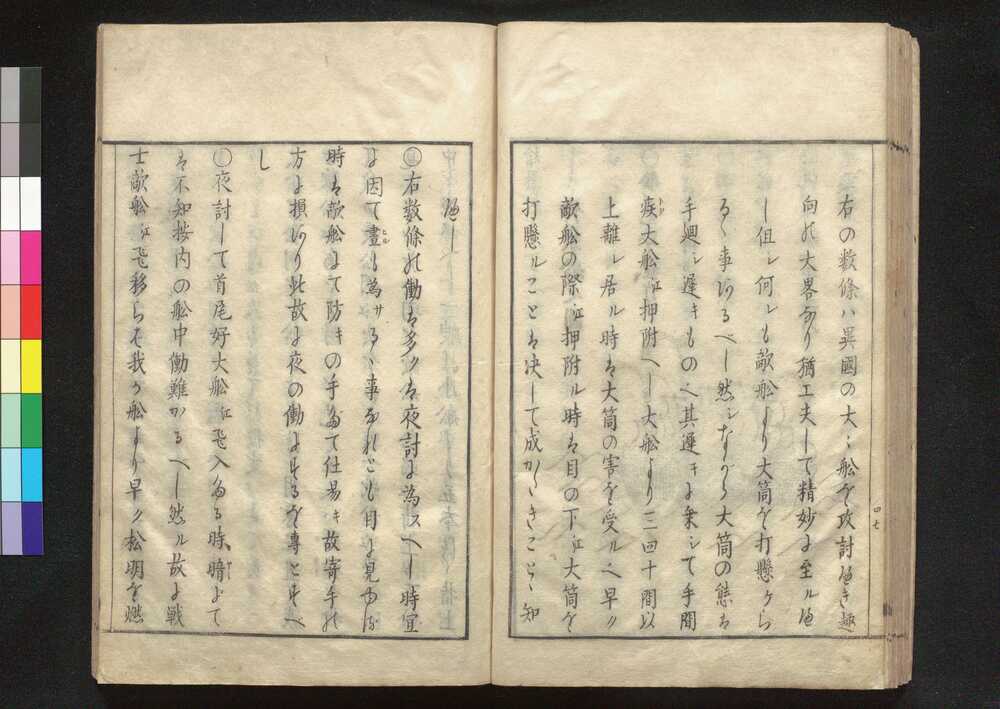 右の数條ハ異國の大ゝ舩を攻討べき趣
向の大畧なり猶工夫して精妙に至ルべ
し但シ何レも敵舩より大筒を打懸ケら
るゝ事あるべし然シながら大筒の態は
手廻シ遅キもの也其遅キに乗シて手間
疾大舩江押附へし大舩より三四十間以
上離レ居ル時は大筒の害を受ル也早ク
敵舩の際江押附ル時は目の下江大筒を
打懸ルことは决して成がたきことゝ知
四七
べし
○右数條の働は多クは夜討に為スへし時宜
に因て晝も為サるゝ事なれとも目に見ゆる
時は敵舩にて防キの手当て仕易キ故寄手の
方に損あり此故に夜の働にするを専とすべ
し
○夜討して首尾好大舩江飛入たる時暗にて
は不知按内の舩中働難かるへし然ル故に戦
士敵舩江飛移らは我か舩より早ク松明を燃